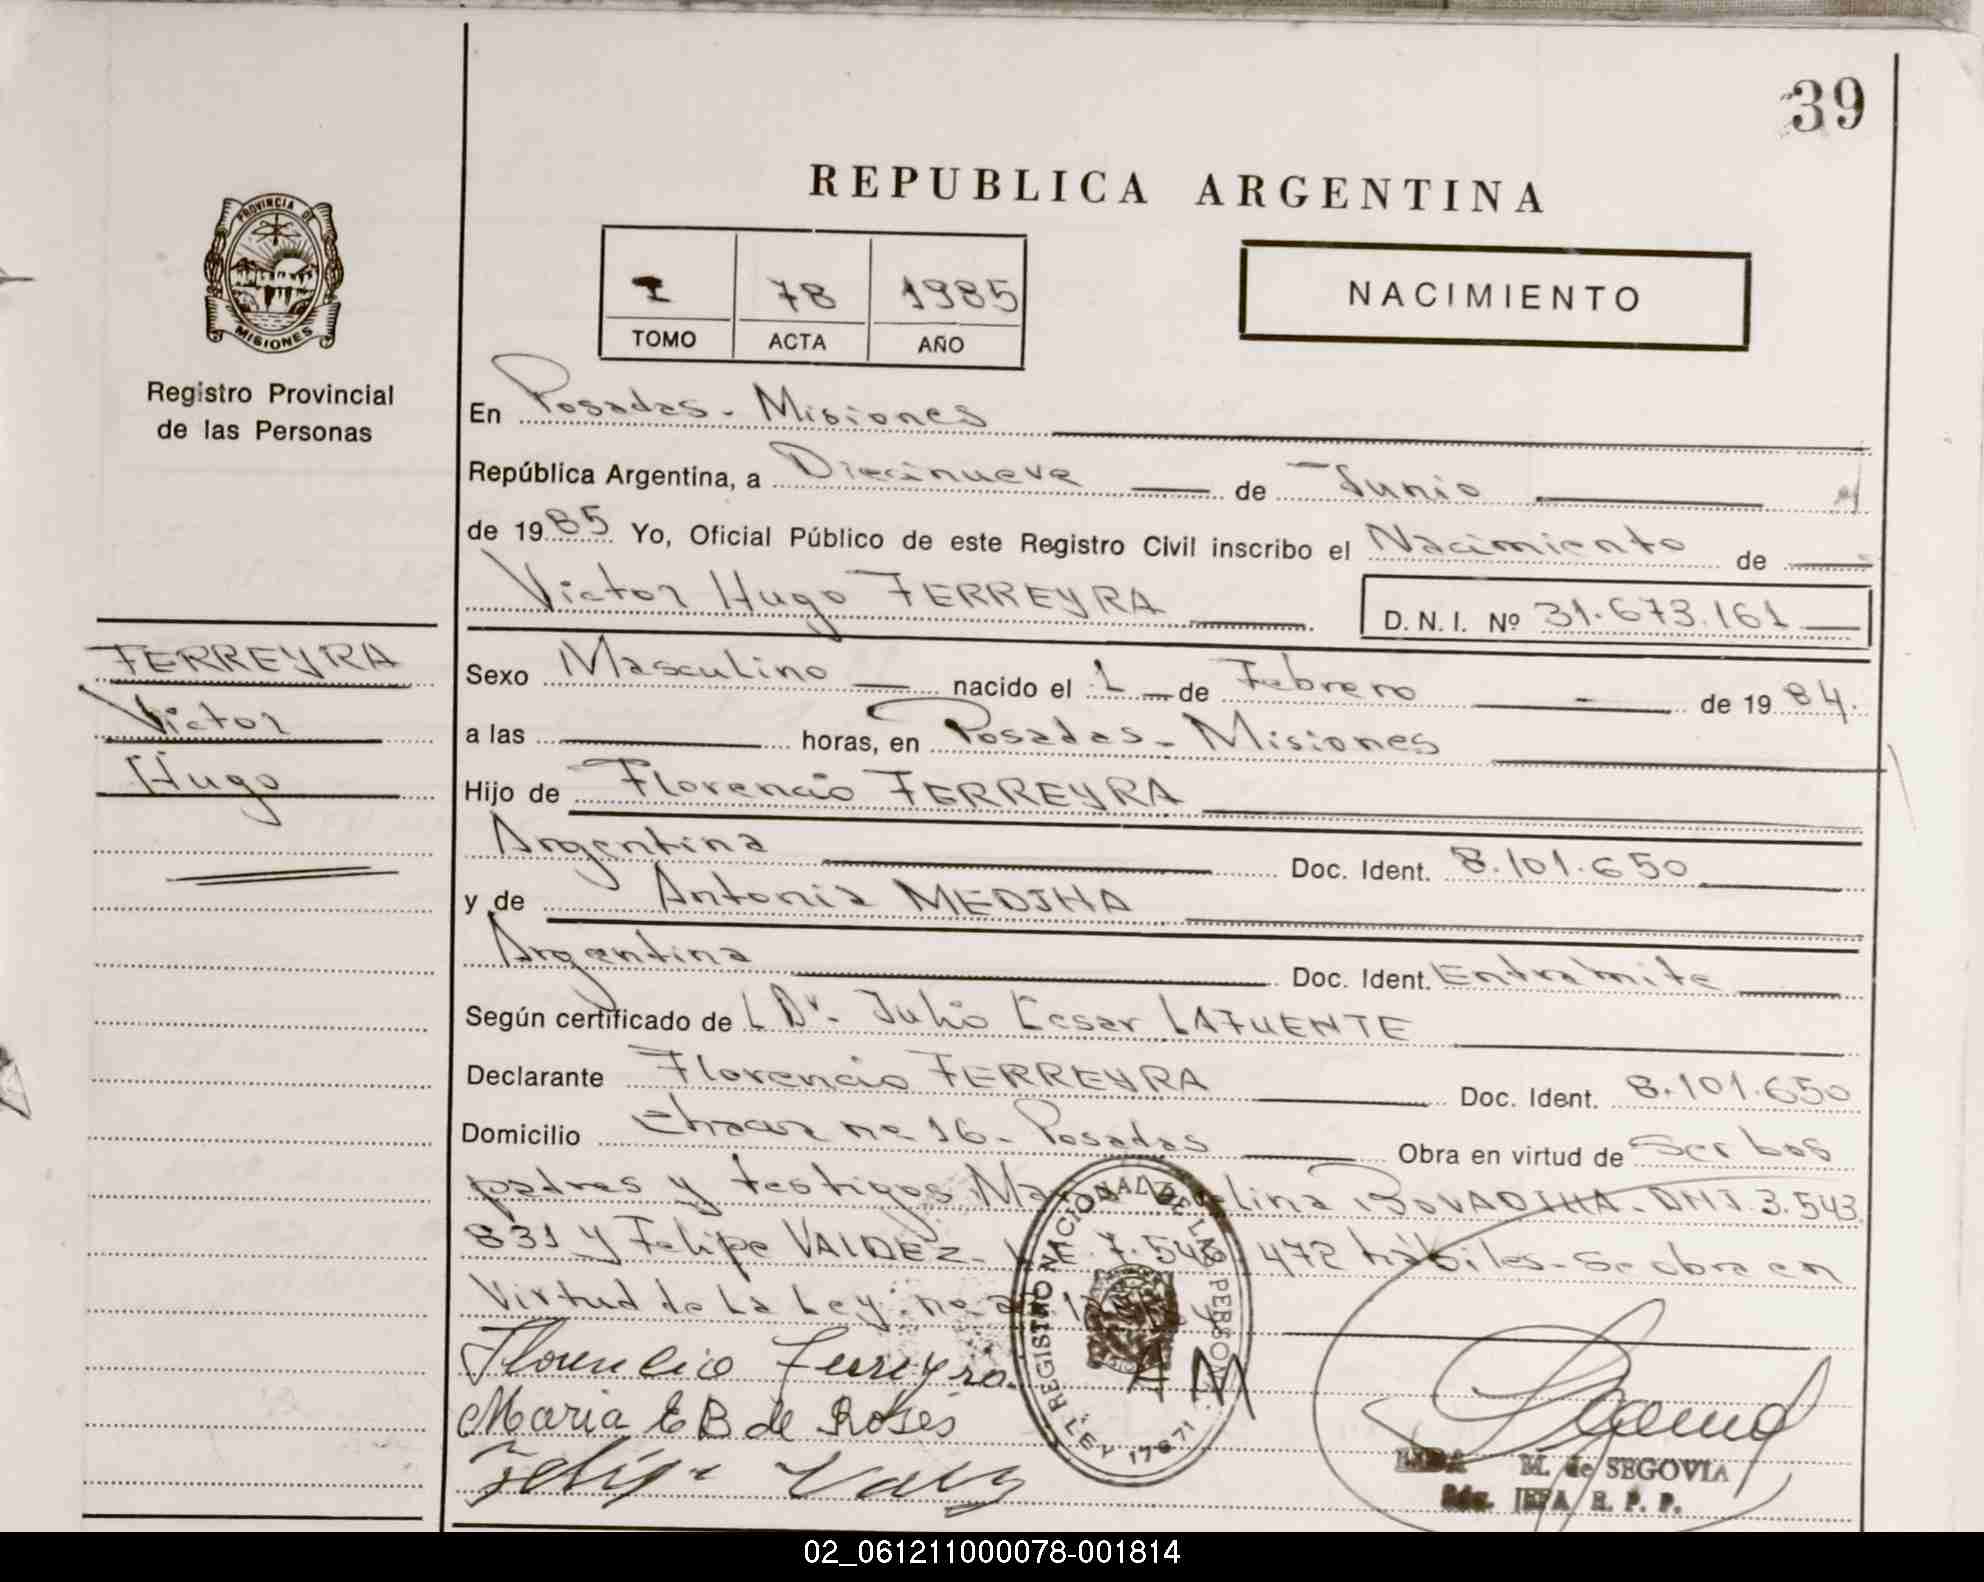 39
REPUBLICA ARGENTINA
PROVINCIA DE
MISIONES
Registro Provincial
de las Personas
I 78 1985
TOMO ACTA AÑO
NACIMIENTO
En Posadas - Misiones
República Argentina, a Diecinueve de Junio
de 1985 Yo, Oficial Público de este Registro Civil inscribo el Nacimiento de
Victor Hugo FERREYRA D. N. I. Nº 31.673.161
FERREYRA
Victor
Hugo
Sexo Masculino nacido el 1 de Febrero de 1984.
a las horas, en Posadas - Misiones
Hijo de Florencio FERREYRA
Argentina Doc. Ident. 8.101.650
y de Antonia MEDINA
Argentina Doc. Ident. Entramite
Según certificado de L Dr. Julio Cesar LAFUENTE
Declarante Florencio FERREYRA Doc. Ident. 8.101.650
Domicilio Chacra nº 16 - Posadas Obra en virtud de Ser los
padres y testigos BOVADINA - DNI 3.543.
831 y Felipe VALDEZ - 472 hábiles - Se obra en
Virtud de La Ley nº
REGISTRO NACIONAL DE LAS PERSONAS
LEY 17671
Florencio Ferreyra
Maria E B de Roses
Felipe
M. de SEGOVIA
JEFA R. P. P.
02_061211000078-001814